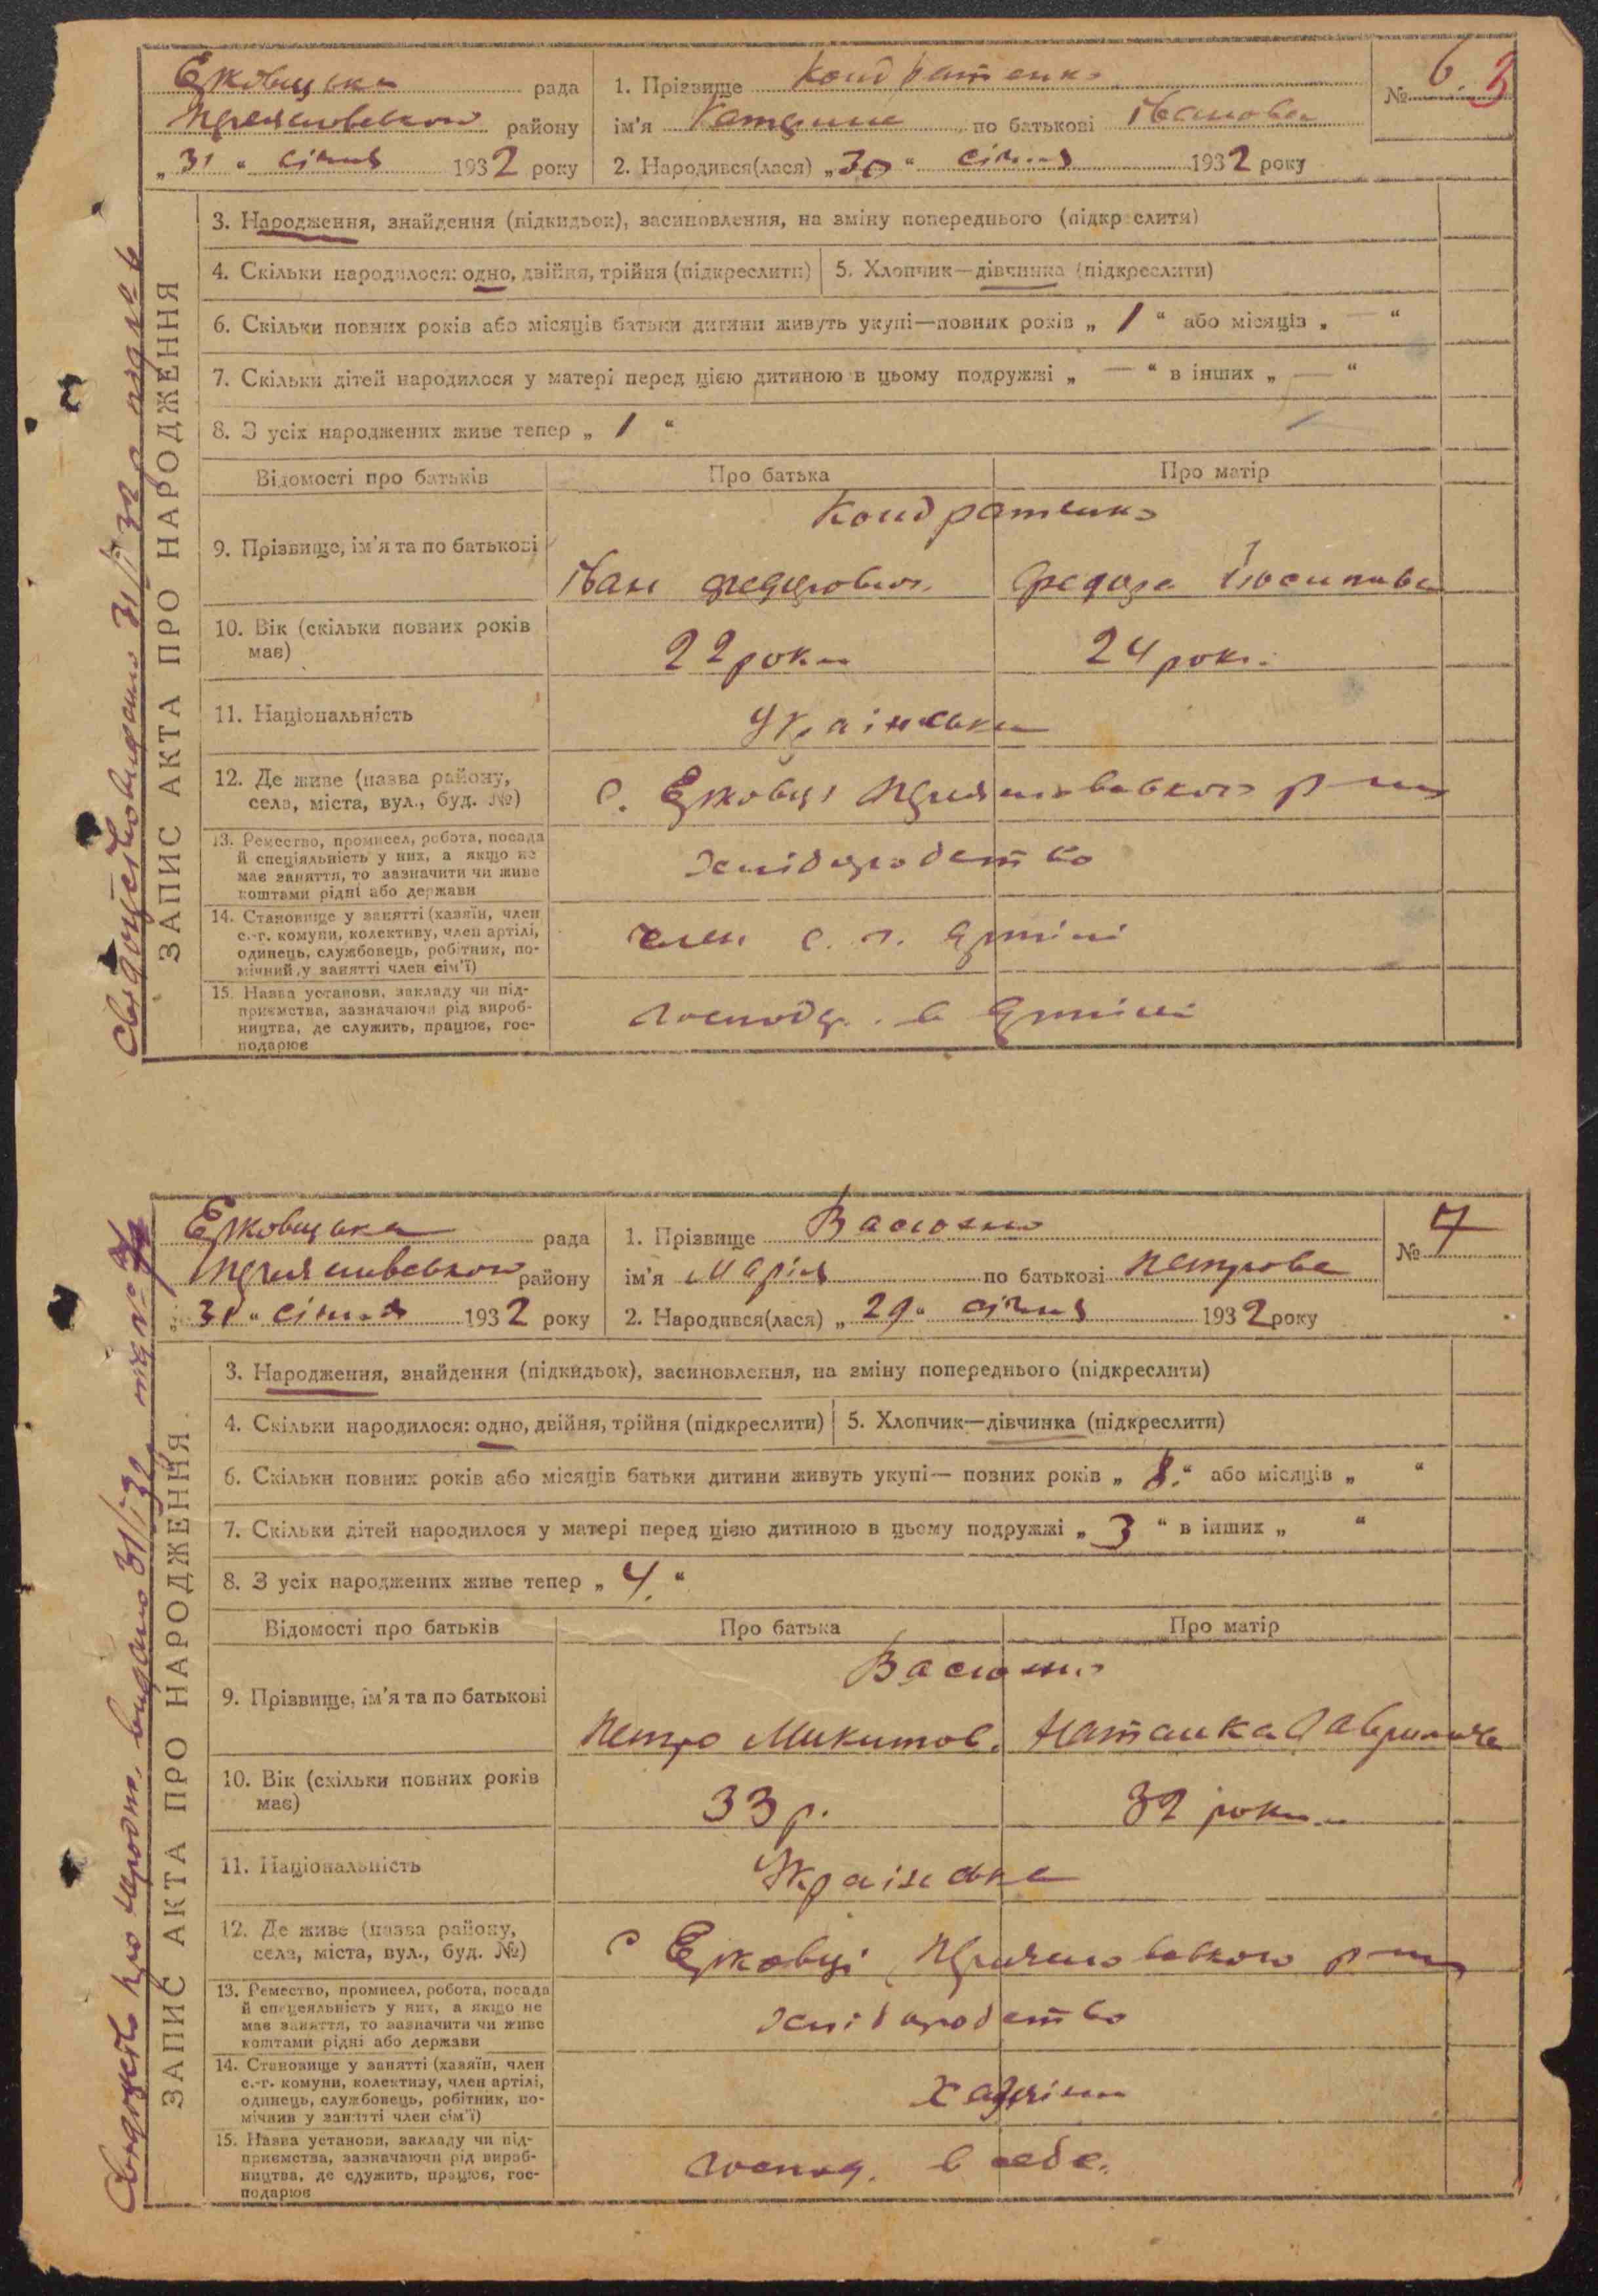 Єрковецька рада
Переяславського району
„31“ січня 1932 року
1. Прізвище Кондратенко
ім'я Катерина по батькові Іванова
№ 6 3
2. Народився(лася) „30“ січня 1932 року
3. Народження, знайдення (підкидьок), засиновлення, на зміну попереднього (підкреслити)
4. Скільки народилося: одно, двійня, трійня (підкреслити) 5. Хлопчик—дівчинка (підкреслити)
6. Скільки повних років або місяців батьки дитини живуть укупі—повних років „1“ або місяців „—“
7. Скільки дітей народилося у матері перед цією дитиною в цьому подружжі „—“ в інших „—“
8. З усіх народжених живе тепер „1“
Відомості про батьків Про батька Про матір
9. Прізвище, ім'я та по батькові
Кондратенко
Іван Федорович Федора Йосипівна
10. Вік (скільки повних років має)
22 роки 24 роки
11. Національність
Українська
12. Де живе (назва району, села, міста, вул., буд. №)
с. Єрковці Переяславського р-ну
13. Ремество, промисел, робота, посада
й спеціяльність у них, а якщо не
має заняття, то зазначити чи живе
коштами рідні або держави
Хліборобство
14. Становище у занятті (хазяїн, член
с.-г. комуни, колективу, член артілі,
одинець, службовець, робітник, по-
мічний у занятті член сім'ї)
член с. г. Артілі
15. Назва установи, закладу чи під-
приємства, зазначаючи рід вироб-
ництва, де служить, працює, гос-
подарює
Господар. в Артілі
ЗАПИС АКТА ПРО НАРОДЖЕННЯ
видано 31/I 32 під № 6
Єрковецька рада
Переяславського району
„31“ січня 1932 року
1. Прізвище Васюхно
ім'я Марія по батькові Петрова
№ 7
2. Народився(лася) „29“ січня 1932 року
3. Народження, знайдення (підкидьок), засиновлення, на зміну попереднього (підкреслити)
4. Скільки народилося: одно, двійня, трійня (підкреслити) 5. Хлопчик—дівчинка (підкреслити)
6. Скільки повних років або місяців батьки дитини живуть укупі— повних років „8.“ або місяців „ “
7. Скільки дітей народилося у матері перед цією дитиною в цьому подружжі „3“ в інших „ “
8. З усіх народжених живе тепер „4.“
Відомості про батьків Про батька Про матір
9. Прізвище, ім'я та по батькові
Васюхно
Петро Микитов. Наталка Гаврилівна
10. Вік (скільки повних років має)
33 р. 32 роки
11. Національність
Українська
12. Де живе (назва району, села, міста, вул., буд. №)
с Єрковці Переяславського р-ну
13. Ремество, промисел, робота, посада
й спецеяльність у них, а якщо не
має заняття, то зазначити чи живе
коштами рідні або держави
Хліборобство
14. Становище у занятті (хазяїн, член
с.-г. комуни, колективу, член артілі,
одинець, службовець, робітник, по-
мічнив у занятті член сім'ї)
Хазяїни
15. Назва установи, закладу чи під-
приємства, зазначаючи рід вироб-
ництва, де служить, працює, гос-
подарює
Господ. в себе.
ЗАПИС АКТА ПРО НАРОДЖЕННЯ
Свідоцтво про народж. видано 31/I 32 під № 7